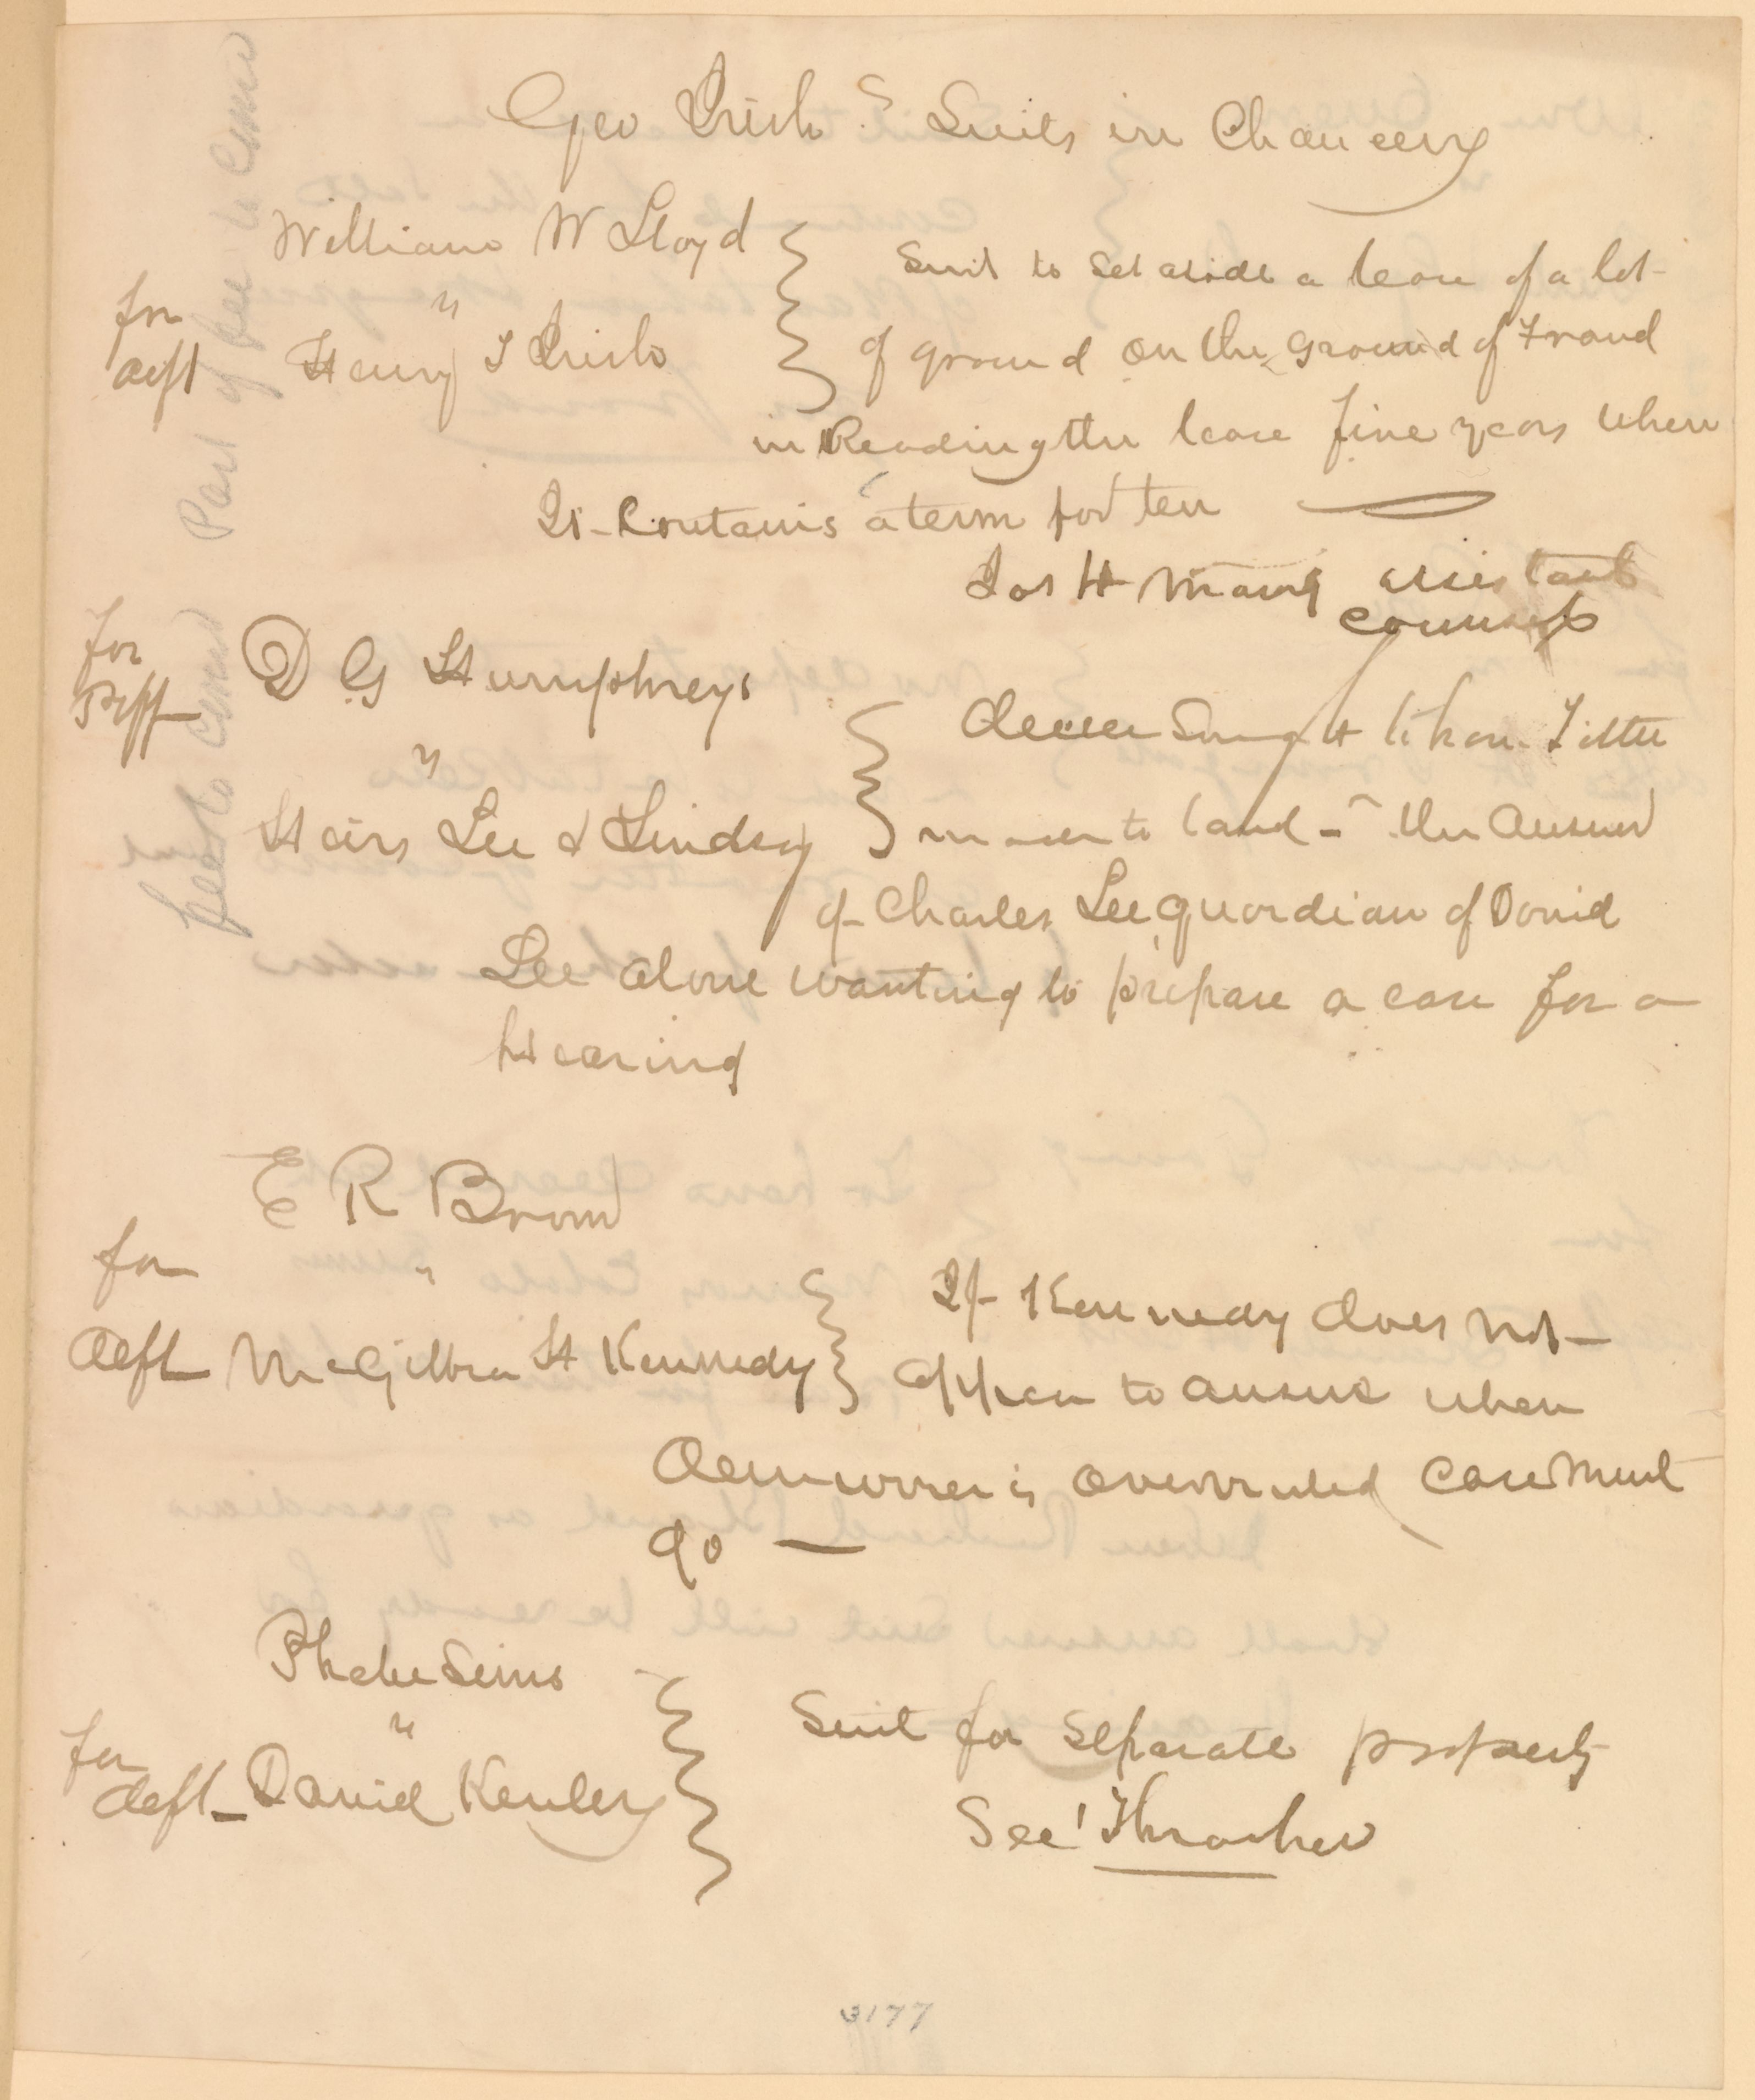 Geo Irish S Suits in Chancery
William W Lloyd
Suit to Set aside a lease of a lot
for
vs
deft Henry I Irish
of ground on the ground of Fraud
in Reading the lease five years when
It Contains a term for ten
Jas H assistant
counsel
for
Plff
D G Humphreys
vs
decree Sought to have Title
Heirs Lee & Lindsay
made to land - the Answer
of Charles Lee guardian of David
Lee alone wanting to prepare a case for a
Hearing
E R Brown
for
"
If Kennedy does not
deft McGilbra H Kennedy
appear to answer when
demurrer is overruled case must
go
Phebe Sims
vs
Suit for Separate property
for
deft David Kenley
See Thrasher
Part of fee to Come
fee to come
3177